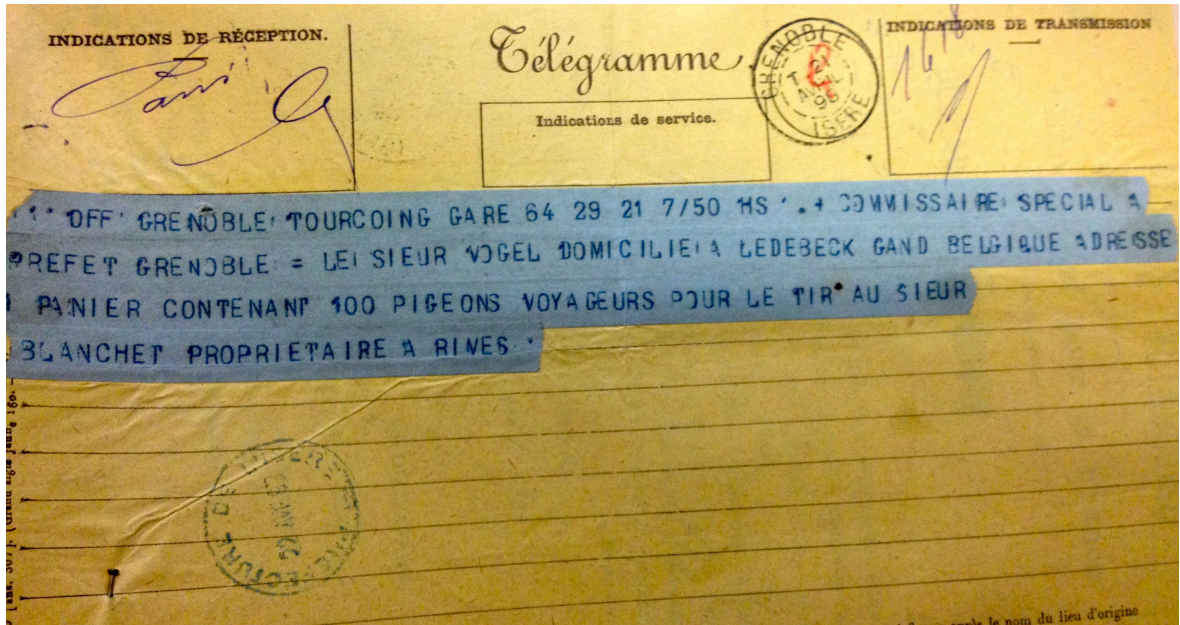 INDICATIONS DE RÉCEPTION.
Télégramme
INDICATIONS DE TRANSMISSION
Indications de service.
GRENOBLE
21
AVRIL
ISERE
OFF GRENOBLE TOURCOING GARE 64 29 21 7/50 HS . + COMMISSAIRE SPECIAL A
PREFET GRENOBLE = LE SIEUR VOGEL DOMICILIE A LEDEBECK GAND BELGIQUE ADRESSE
1 PANIER CONTENANT 100 PIGEONS VOYAGEURS POUR LE TIR AU SIEUR
BLANCHET PROPRIETAIRE A RIVES
PREFECTURE DE L'ISERE
le nom du lieu d'origine